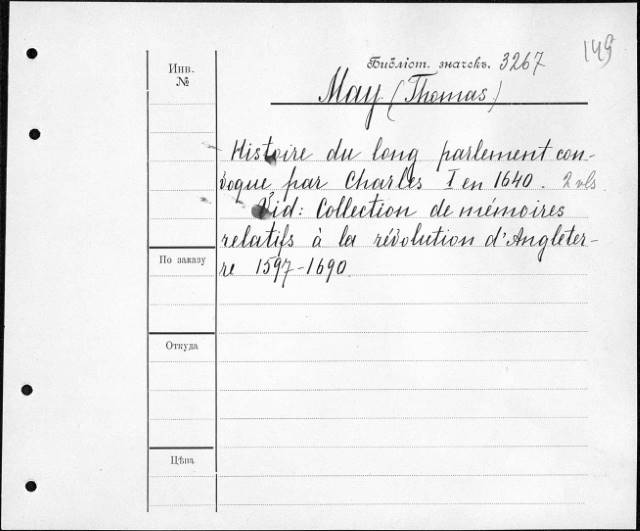 149
Инв. №
Библіот. значекъ. 3267
May (Thomas)
Histoire du long parlement con-
voque par Charles I en 1640. 2 vls.
Vid: Collection de mémoires
relatifs à la révolution d'Angleter-
re 1597-1690.
По заказу
Откуда
Цѣна